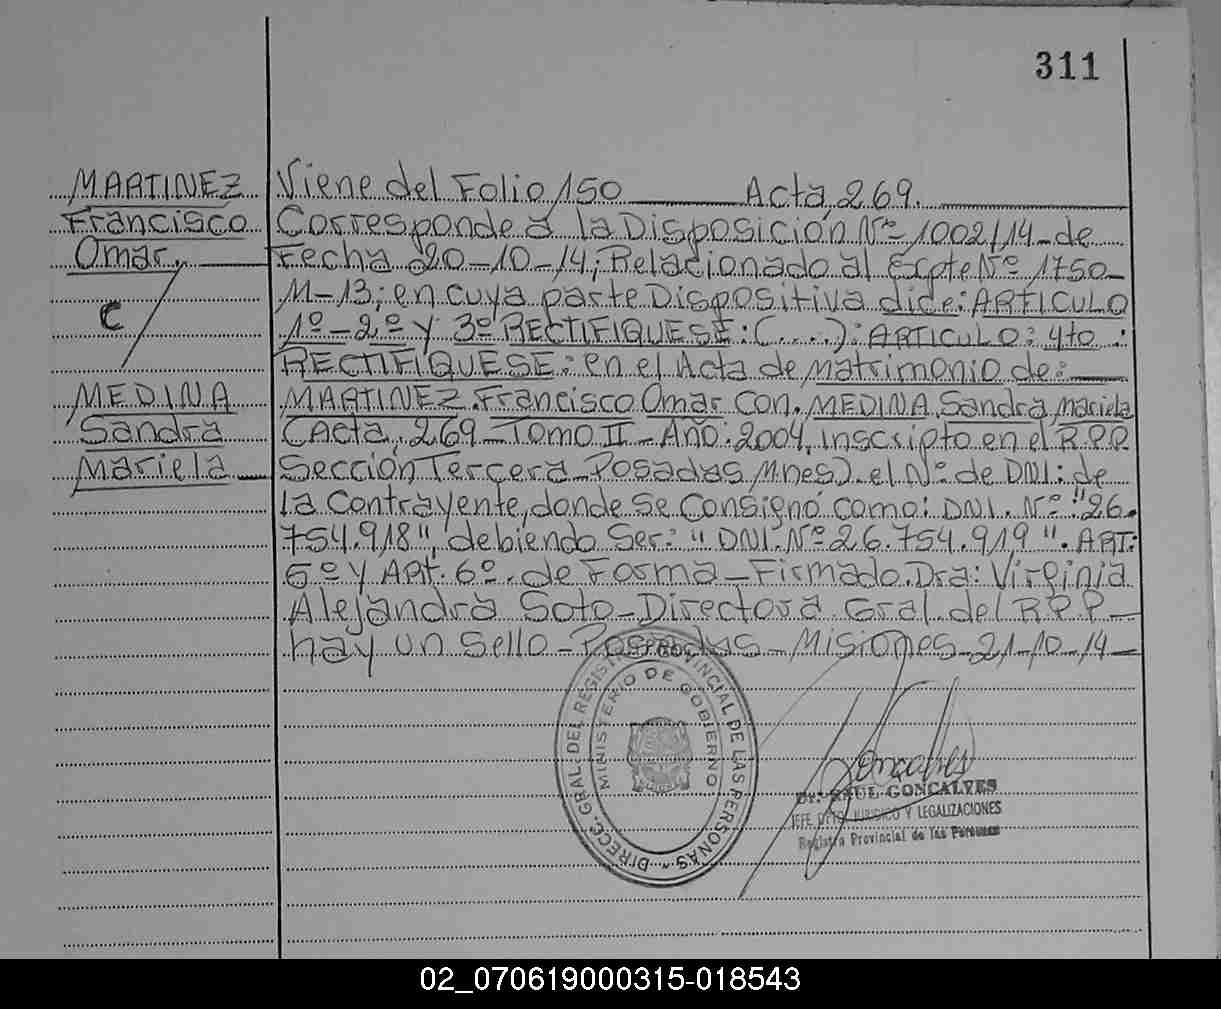 311
MARTINEZ
Francisco
Omar.
C/
MEDINA
Sandra
Mariela
Viene del Folio 150 Acta 269.
Corresponde a la Disposición Nº 1002/14-de
Fecha 20-10-14; Relacionado al Ecpte Nº 1750-
M-13; en cuya parte Dispositiva dice: ARTICULO
1º-2º y 3º RECTIFIQUESE: (....): ARTICULO: 4to:
RECTIFIQUESE: en el Acta de Matrimonio de:
MARTINEZ Francisco Omar con MEDINA Sandra Mariela
(Acta 269-Tomo II-Año: 2004, inscripto en el R.P.P
Sección Tercera-Posadas Mnes). el Nº de DNI: de
la Contrayente, donde se Consignó como: DNI. Nº "26.
754.918", debiendo Ser: "DNI. Nº 26.754.919". ART:
5º y Art. 6º. de Forma-Firmado. Dra: Virginia
Alejandra Soto-Directora Gral. del R.P.P-
hay un Sello-Posadas-Misiones-21-10-14-
DIRECC. GRAL. DEL REGISTRO PROVINCIAL DE LAS PERSONAS
MINISTERIO DE GOBIERNO
Goncalves
Dr. RAUL GONCALVES
JEFE DPTO. JURIDICO Y LEGALIZACIONES
Registro Provincial de las Personas
02_070619000315-018543